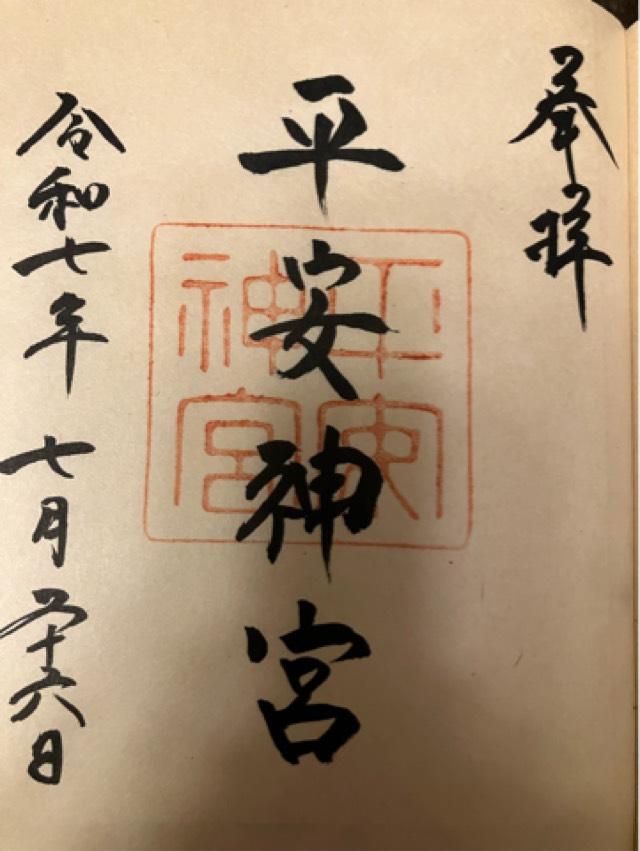 奉拝
平安神宮
平安神宮
令和七年 七月二十六日